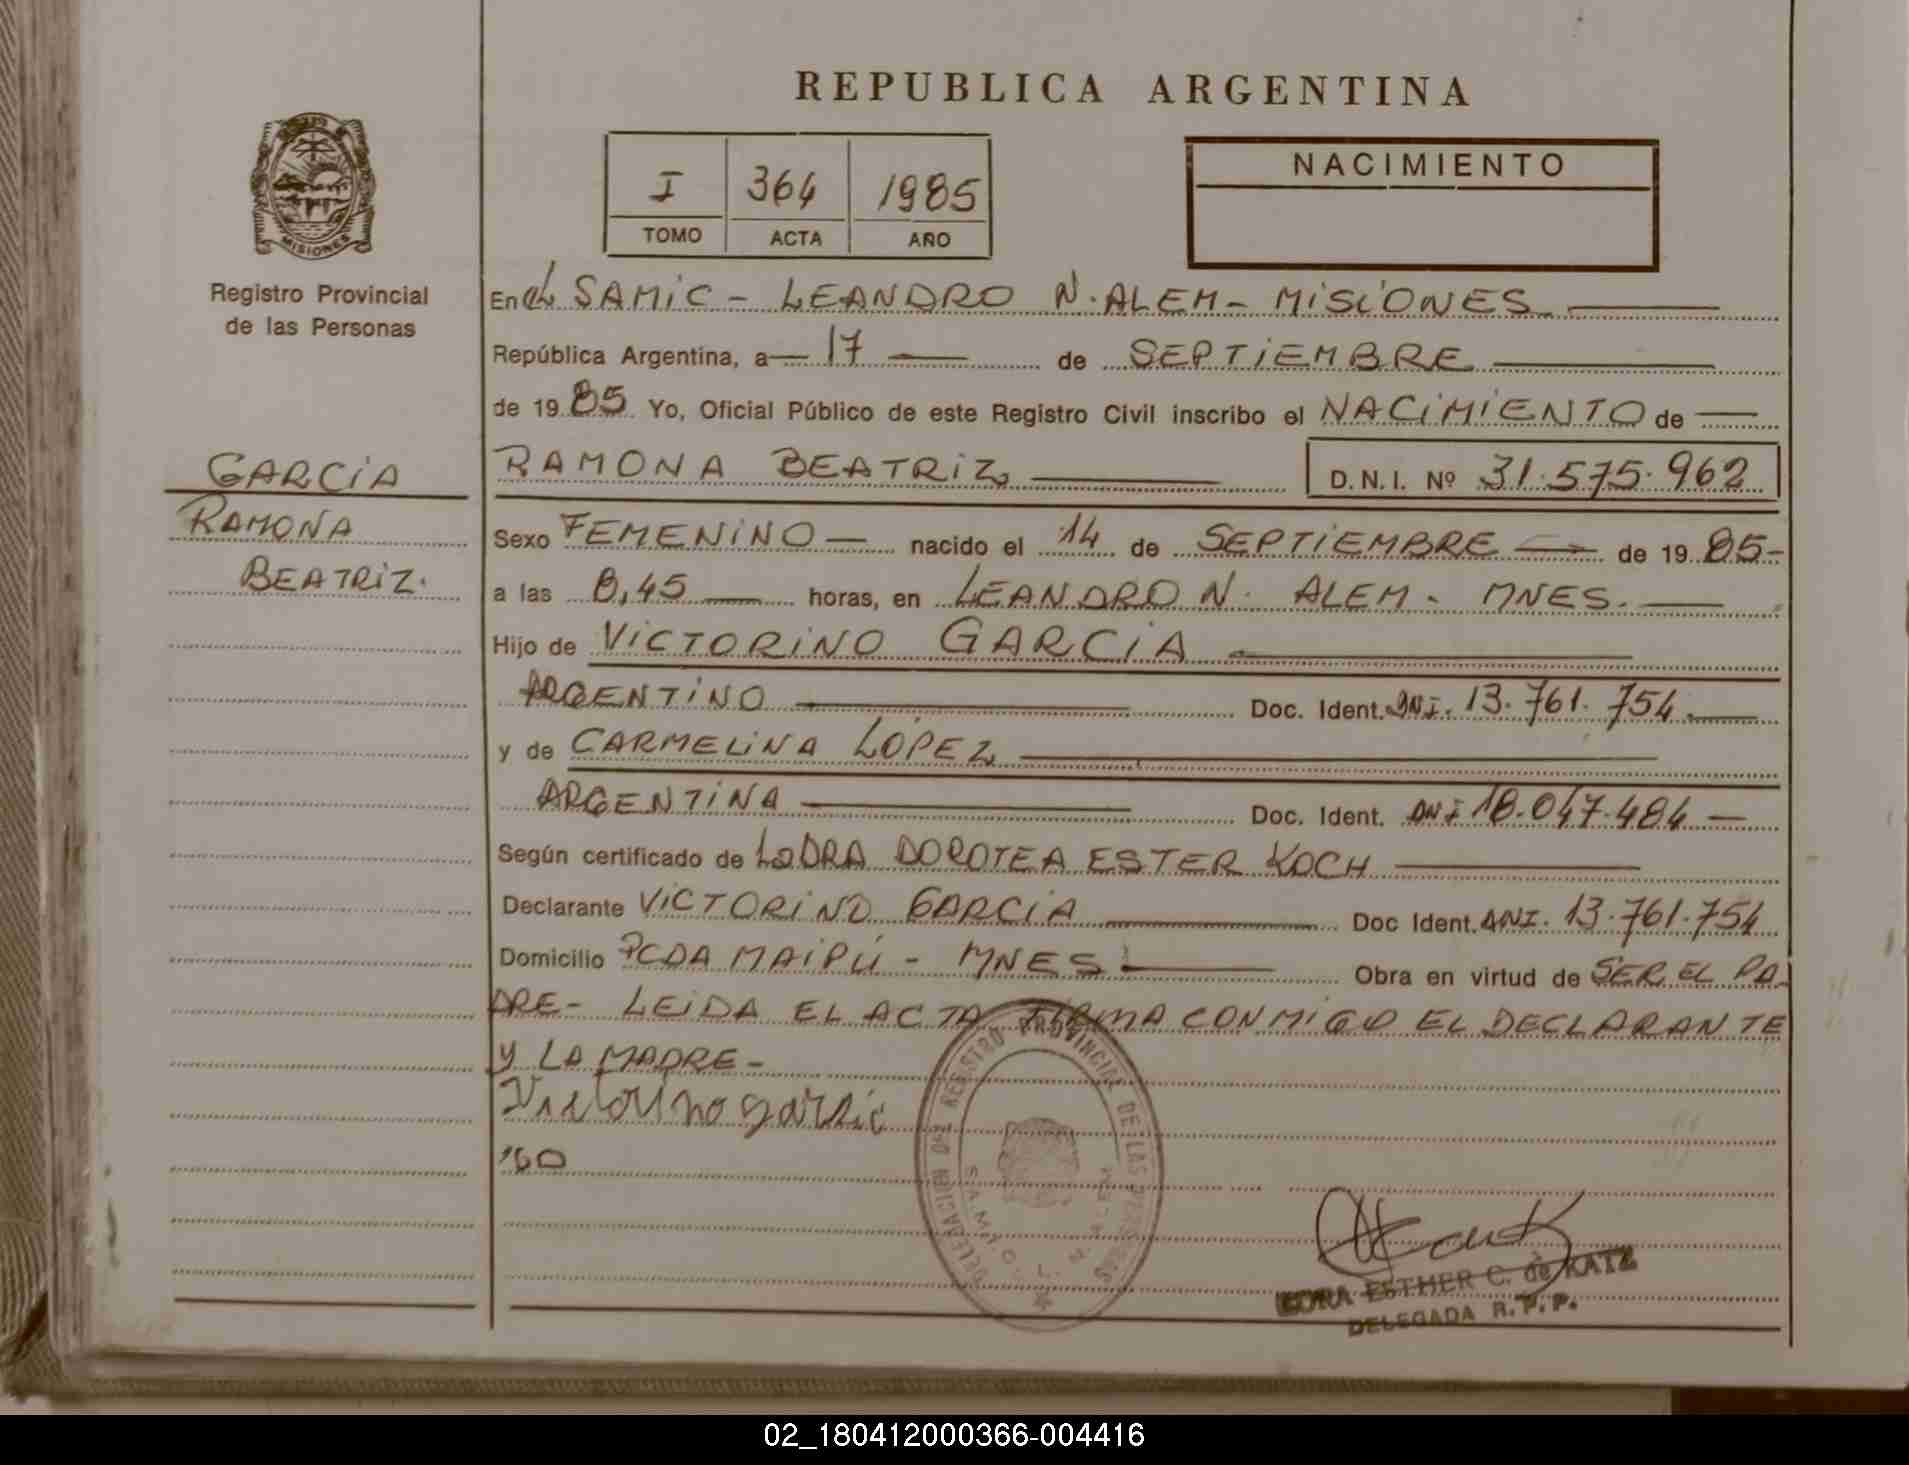 REPUBLICA ARGENTINA
MISIONES
Registro Provincial
de las Personas
I 364 1985
TOMO ACTA AÑO
NACIMIENTO
GARCIA
RAMONA
BEATRIZ.
En el SAMIC - LEANDRO N. ALEM - MISIONES
República Argentina, a 17 de SEPTIEMBRE
de 1985 Yo, Oficial Público de este Registro Civil inscribo el NACIMIENTO de
RAMONA BEATRIZ D.N.I. Nº 31.575.962
Sexo FEMENINO nacido el 14 de SEPTIEMBRE de 1985-
a las 8,45 horas, en LEANDRO N. ALEM - MNES.
Hijo de VICTORINO GARCIA
ARGENTINO Doc. Ident. DNI. 13.761.754
y de CARMELINA LOPEZ
ARGENTINA Doc. Ident. DNI 18.047.484
Según certificado de DOROTEA ESTER KOCH
Declarante VICTORINO GARCIA Doc Ident. DNI. 13.761.754
Domicilio PCDA MAIPÚ - MNES Obra en virtud de SER EL PA
DRE - LEIDA EL ACTA FIRMA CONMIGO EL DECLARANTE
Y LA MADRE -
DELEGACION REGISTRO PROVINCIAL DE LAS PERSONAS
L. N. ALEM
ESTHER C. de KATZ
DELEGADA R.P.P.
02_180412000366-004416